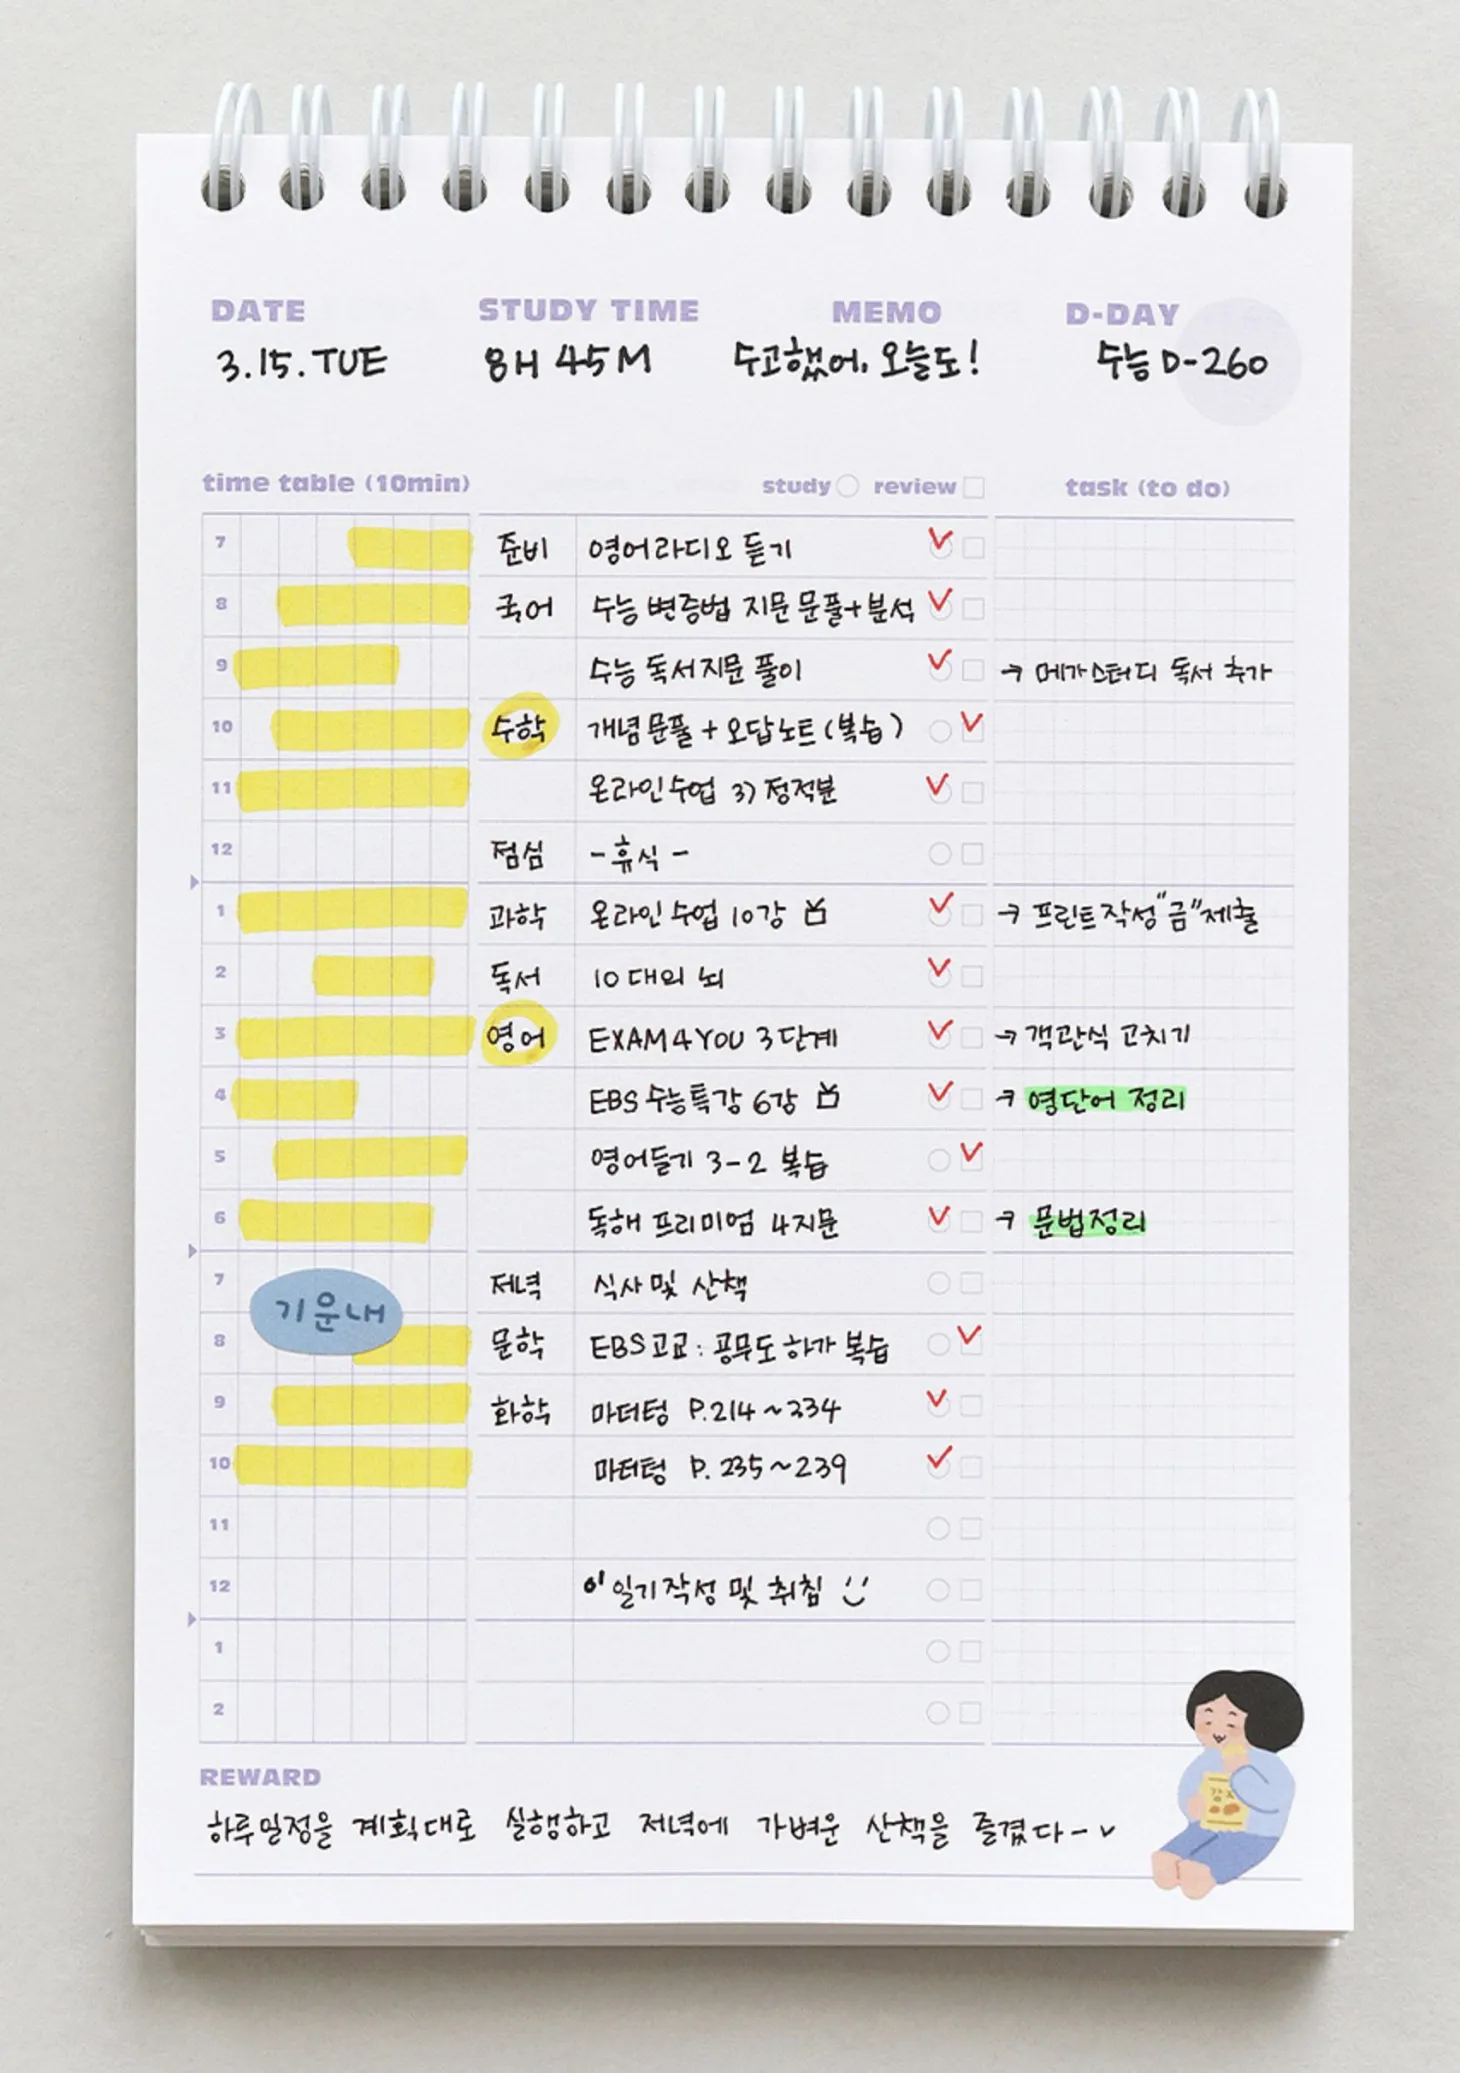 DATE STUDY TIME MEMO D-DAY
3.15.TUE 8H 45M 수고했어, 오늘도! 수능 D-260
time table (10min) study review task (to do)
7 준비 영어라디오 듣기
8 국어 수능 변증법 지문 문풀+분석
9 수능 독서지문 풀이 → 메가스터디 독서 추가
10 수학 개념문풀 + 오답노트 (복습)
11 온라인수업 3) 정적분
12 점심 -휴식-
1 과학 온라인수업 10강 → 프린트작성 "금"제출
2 독서 10대의 뇌
3 영어 EXAM4YOU 3단계 → 객관식 고치기
4 EBS 수능특강 6강 → 영단어 정리
5 영어듣기 3-2 복습
6 독해 프리미엄 4지문 → 문법정리
7 저녁 식사 및 산책
기운내
8 문학 EBS고교: 공무도하가 복습
9 화학 마더텅 P.214~234
10 마더텅 P.235~239
11
12 일기작성 및 취침
1
2
REWARD
하루일정을 계획대로 실행하고 저녁에 가벼운 산책을 즐겼다~
감자